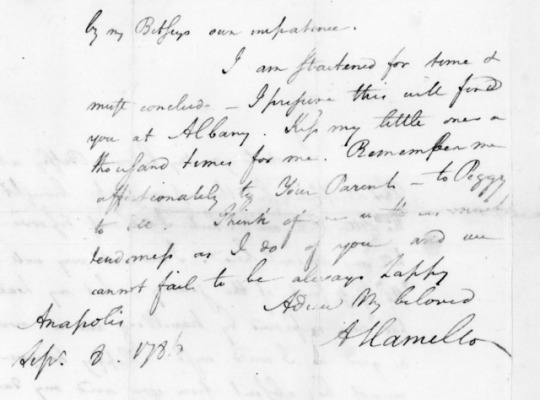 by my Betseys own impatience.
I am straitened for time &
must conclude – I presume this will find
you at Albany. Kiss my little ones a
thousand times for me. Remember me
affectionately to Your Parents – to Peggy
to all. Think of me with as much
tenderness as I do of you and we
cannot fail to be always happy
Adieu My beloved
A Hamilton
Anapolis
Sepr. 8. 1786